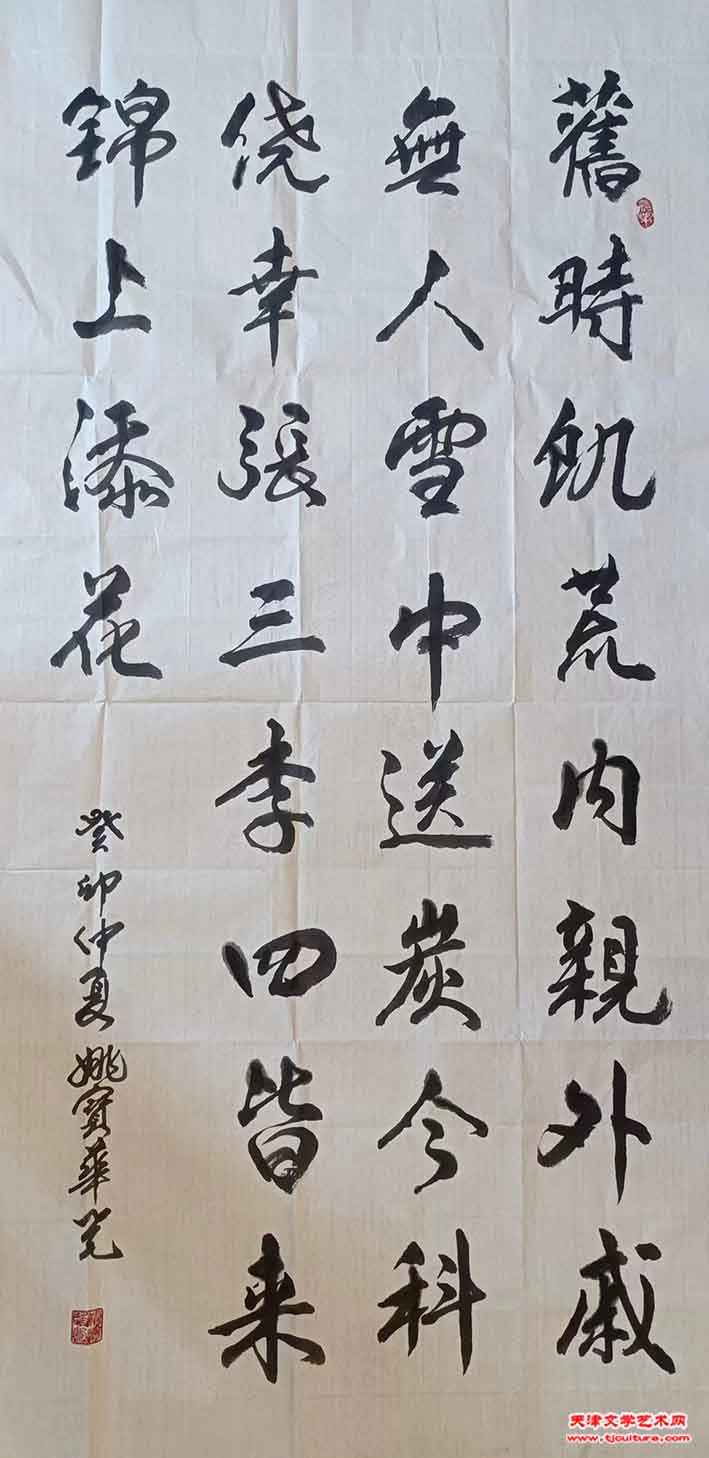 舊時飢荒内親外戚
無人雪中送炭今科
侥幸張三李四皆来
錦上添花
癸卯仲夏姚寶華
天津文学艺术网
www.tjculture.com